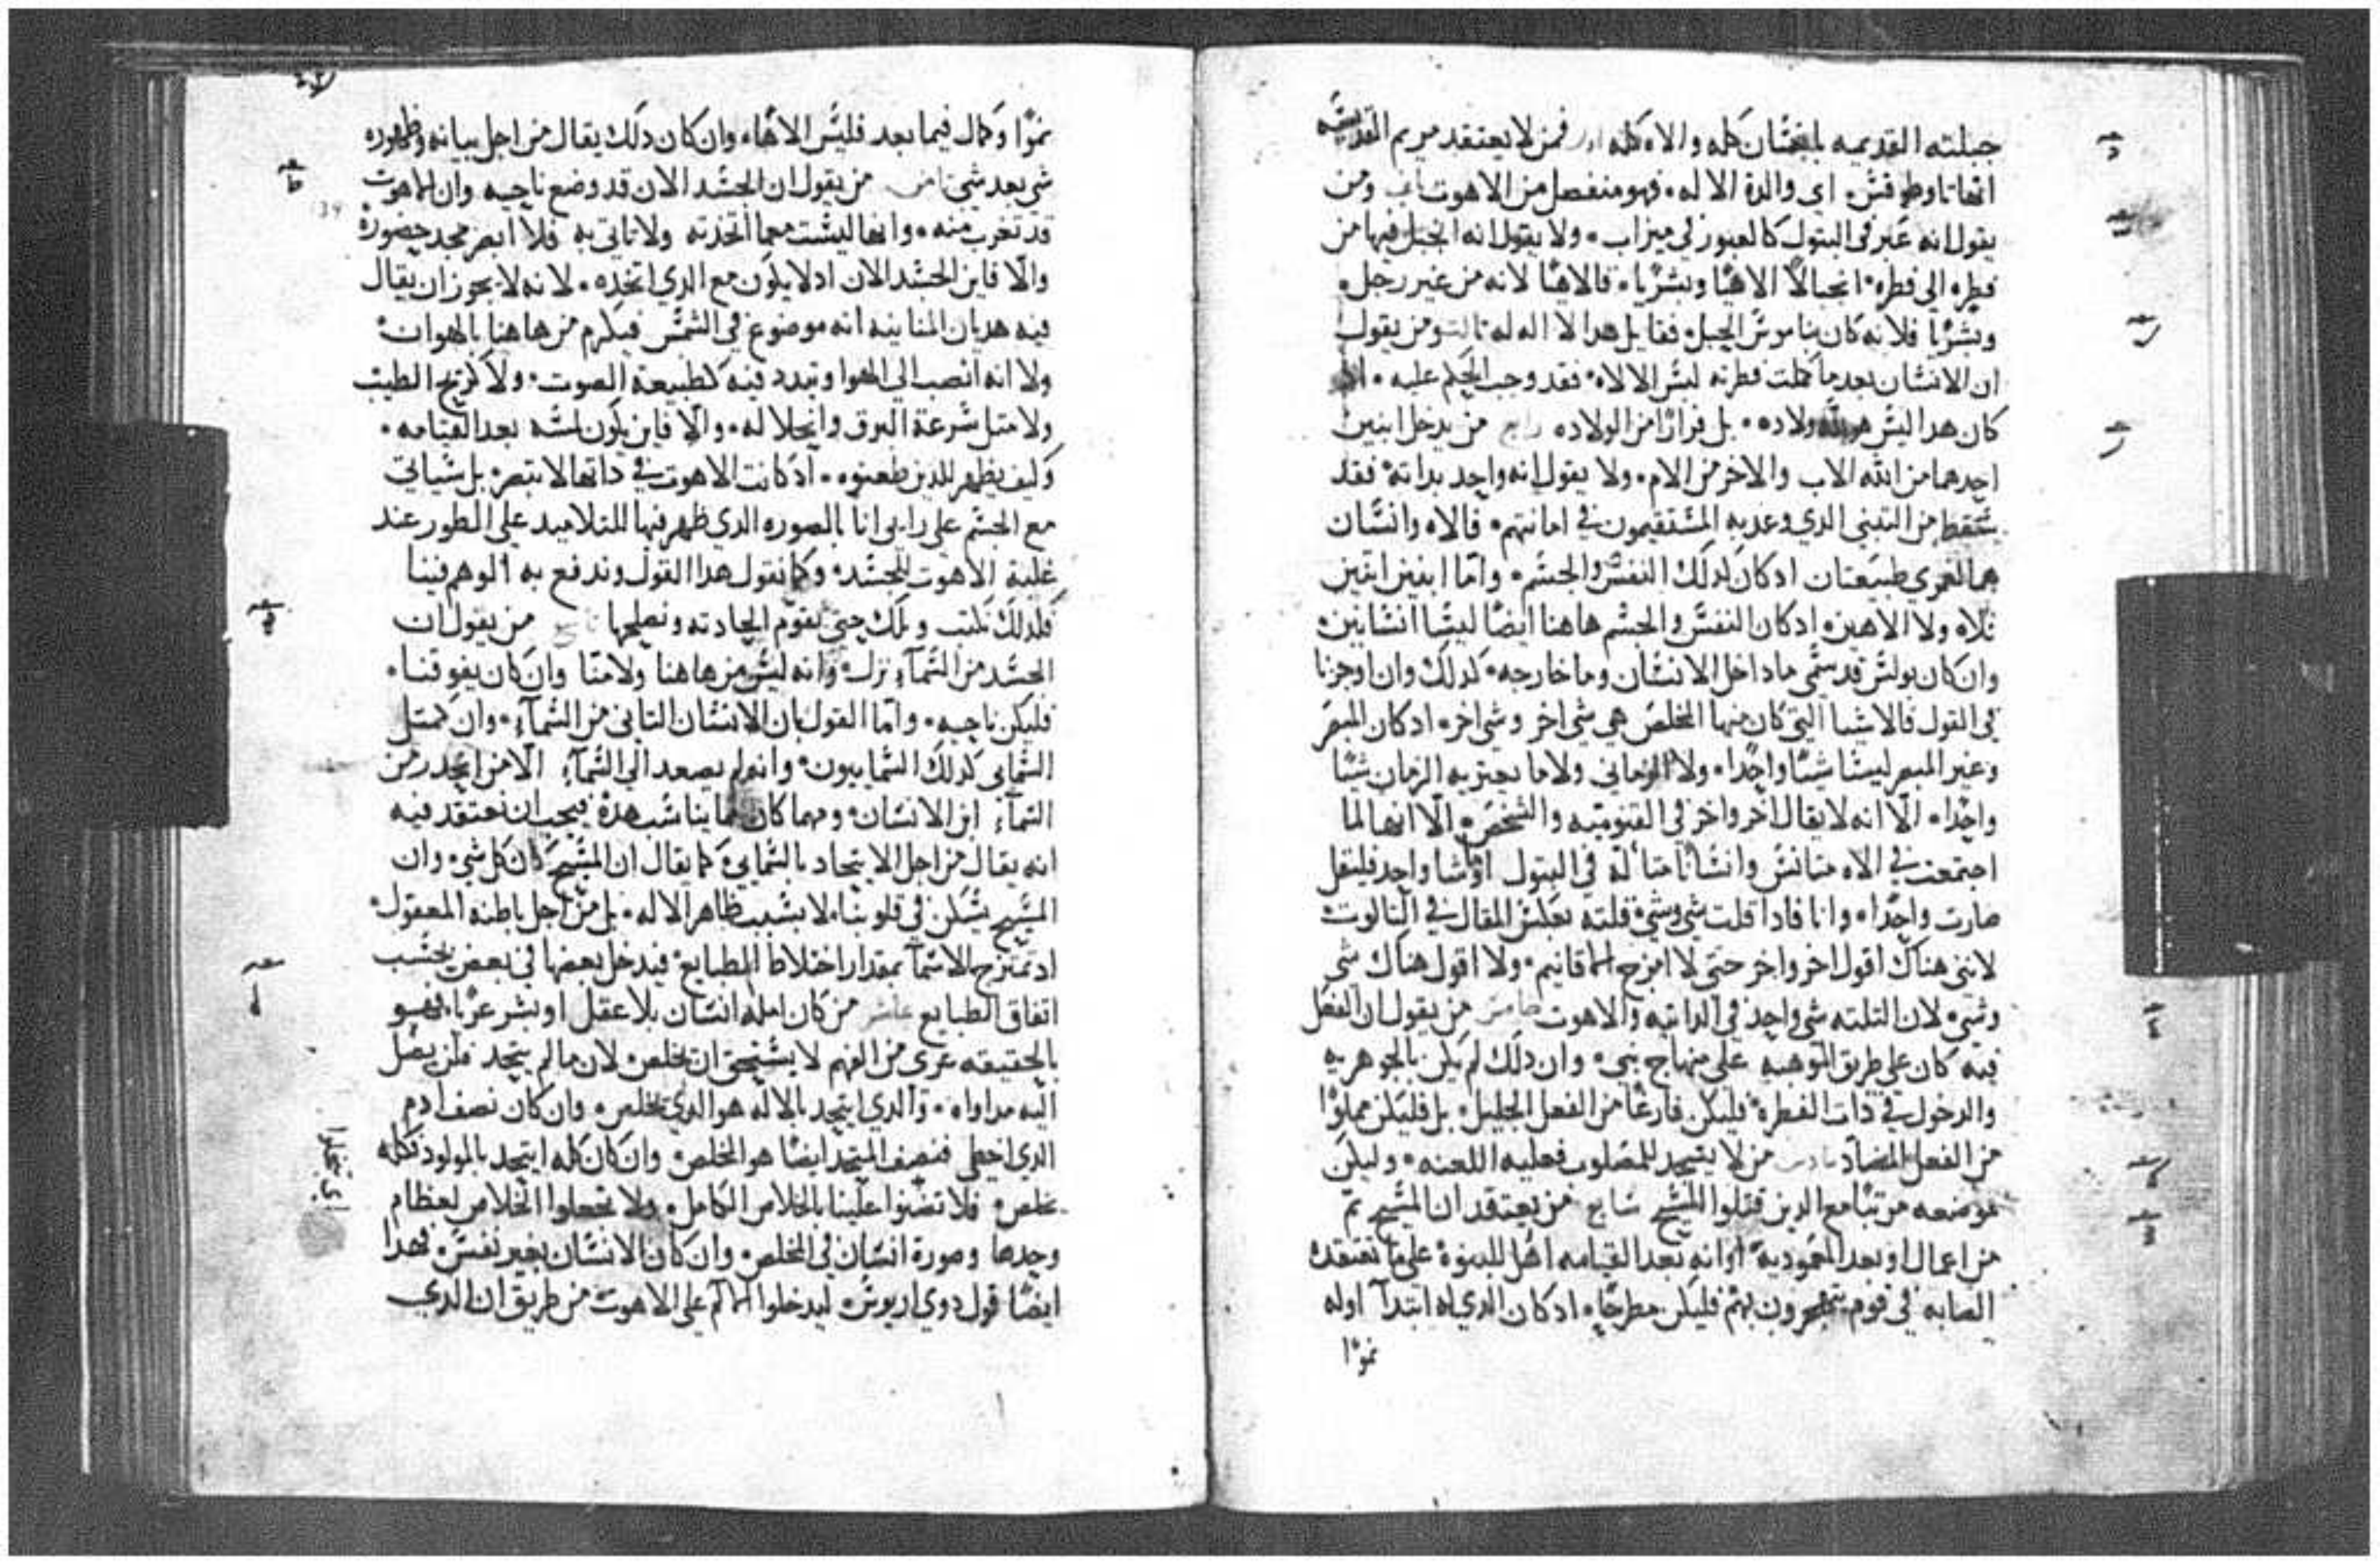 جبلته القديميه بانغشان كله والاه كله اول فمن لا يعتقد مريم القديشه
انها تاوطوقش اي والدة الاله فهو منفصل من الاهوت ثاني ومن
يقول انه عبر في البتول كالعبور في ميزاب ولا يقول انه انجبل فيها من
فطره الي فطره انجبالًا الاهيًا وبشريًا فالاهيًا لانه من غير رجل
وبشريًا فلانه كان بناموش الحبل فقايل هدا لا اله له ثالت ومن يقول
ان الانشان بعد ما كملت فطرته لبش الالاه فقد وجب الحكم عليه
كان هدا ليش هو ولاده بل فرارًا من الولاده رابع من يدخل ابنين
احدهما من الله الاب والاخر من الام ولا يقول انه واحد بداته فقد
شقط من التبني الدي وعد به المشتقيمون في امانتهم فالاه وانشان
هما لعمري طبيعتان ادكان كدلك النفش والجشم واما ابنين اتنين
فلاه ولا الاهين ادكان النفش والجشم هاهنا ايضًا ليشا انشانين
وان كان بولش قد شمى ماداخل الانشان وما خارجه كدلك وان اوجزنا
في القول فالاشيا التي كان منها المخلص هي شي اخر وشي اخر ادكان المبصر
وغير المبصر ليشا شيًا واحدًا ولا الزماني ولا ما يعتريه الزمان شيًا
واحدًا الّا انه لا يقال اخر واخر في القنوميه والشخص الّا انها لما
اجتمعت في الاه متانش وانشانًا متاله في البتول اوشا واحد فلنقل
صارت واحدًا وانا فادا قلت شي وشي قلته بعكش المقال في التالوت
لانني هناك اقول اخر واخر حتى لا امزج الاقانيم ولا اقول هناك شي
وشي لان التلته شي واحد في الداتيه والاهوت خامس من يقول ان الفعل
فيه كان على طريق الموهبه على منهاج نبي وان دلك لم يكن بالجوهريه
والدخول في دات الفطرة فليكن فارغًا من الفعل الجليل بل فليكن مملوًا
من الفعل المضاد سادس من لا يشجد للمصلوب فعليه اللعنه وليكن
موضعه مرتبًا مع الدين قتلوا المشيح سابع من يعتقد ان المشيح تم
من اعمال او بعد المعموديه او انه بعد القيامه اهل للبنوة على ما تعتقده
الصابه في قوم يتجرون بهم فليكن مطرحًا ادكان الدي له ابتدآ اوله
نموًا
نموًا وكمال فيما بعد فليش الاهًا وان كان دلك يقال من اجل بيانه وظهوره
شي بعد شي ثامن من يقول ان الجشد الان قد وضع ناحيه وان الاهوت
قد تغرب منه وانها ليشت معما اتخدته ولا تاتي به فلا ابصر مجد حضوره
والّا فاين الجشد الان ادلا يكون مع الدي اتخده لانه لا يجوز ان يقال
فيه هديان المنانيه انه موضوع في الشمش فيكرم من هاهنا بالهوان
ولا انه انصب الي الهوا وتبدد فيه كطبيعة الصوت ولا كريح الطيب
ولا متل شرعة البرق وانحلاله والّا فاين يكون لمشه بعد القيامه
وكيف يظهر للدين طعنوه ادكانت الاهوت في داتها لا تبصر بل شياتي
مع الجشم على رايي انا بالصوره الدي ظهر فيها للتلاميد على الطور عند
غلبة الاهوت للجشد وكما نقول هدا القول وندفع به الوهم فينا
فلدلك نكتب وتلك حتى نقوم الحادته ونصلحها تاسع من يقول ان
الجشد من الشمآء نزل وانه ليش من هاهنا ولا منّا وان كان يفوقنا
فليكن ناحيه واما القول بان الانشان التاني من الشمآء وان كمتل
الشمايي كدلك الشماييون وانه لم يصعد الي الشمآء الا من انحدر من
الشمآء ابن الانشان ومهما كان مما يناشب هدة فيجب ان نعتقد فيه
انه يقال من اجل الاتحاد بالشمايي كما يقال ان المشيح كان كل شي وان
المشيح يشكن في قلوبنا لا بشبب ظاهر الاله بل من اجل باطنه المعقول
اد تمتزج الاشمآ بمقدار اختلاط الطبايع فيدخل بعضها في بعض بحشب
اتفاق الطبايع عاشر من كان امله انشان بلا عقل او بشر عريًا فهو
بالحقيقه عري من الفهم لا يشتحق ان يخلص لان مالم يتحد فلن يصل
اليه مداواه والدي ايتحد بالاله هو الدي يخلص وان كان نصف ادم
الدي اخطى فنصف المتحد ايضًا هو المخلص وان كان كله ايتحد بالمولود فكله
يخلص فلا تضنوا علينا بالخلاص الكامل ولا تجعلوا الخلاص لعظام
وحدها وصورة انشان في المخلص وان كان الانشان بغير نفش فهدا
ايضًا قول دوي اريوش ليدخلوا الالم على الاهوت من طريق ان الدي
اي تبخلوا